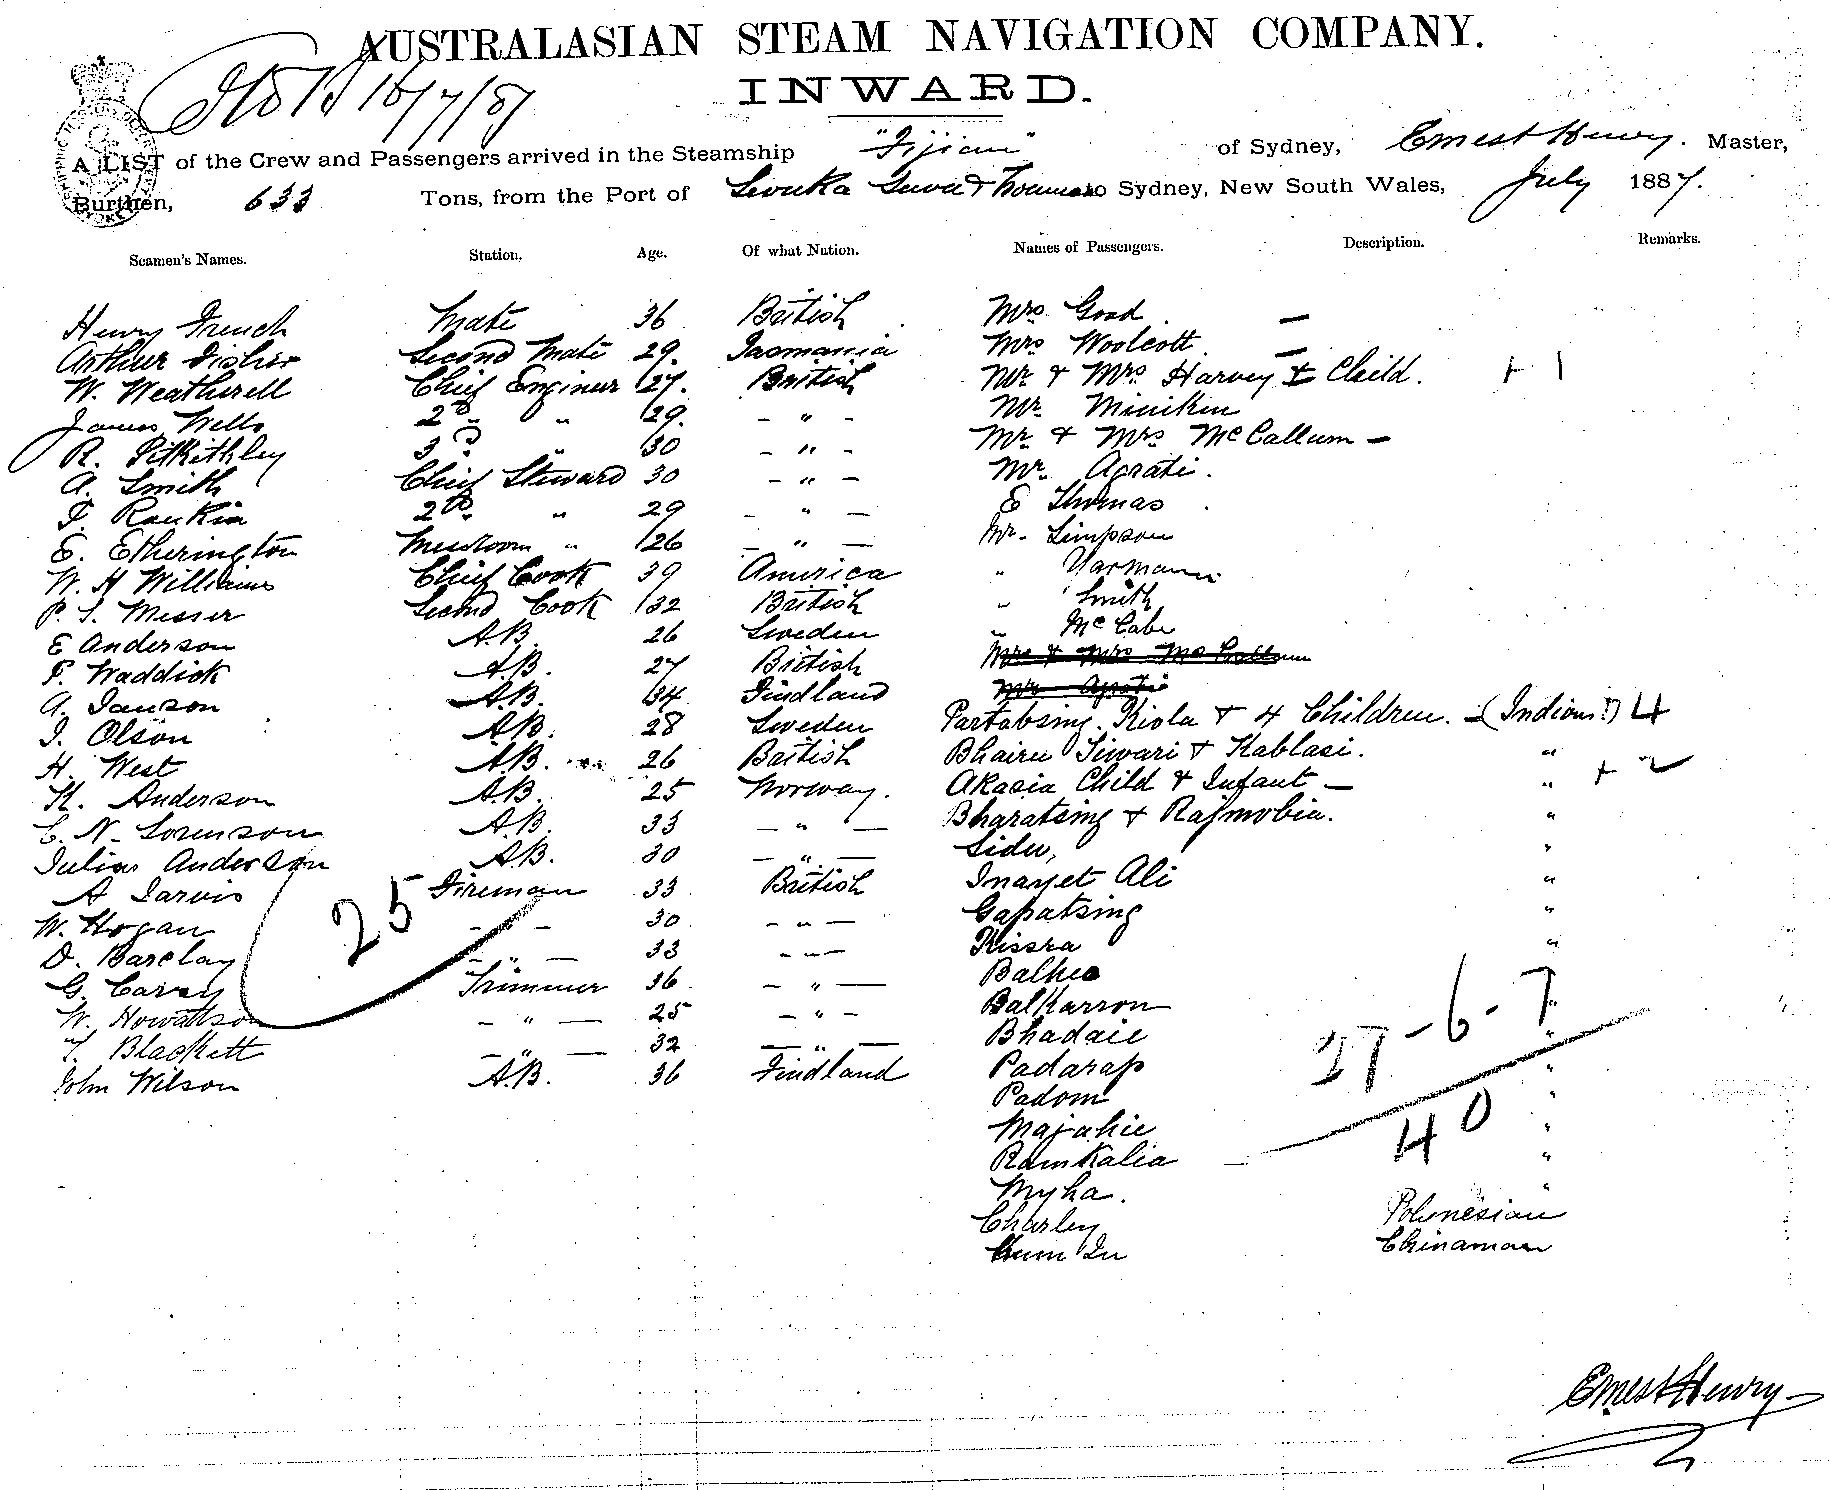 AUSTRALASIAN STEAM NAVIGATION COMPANY.
INWARD.
16/7/87
A LIST of the Crew and Passengers arrived in the Steamship "Fijian" of Sydney, Ernest Henry. Master,
Burthen, 633 Tons, from the Port of Levuka Suva & to Sydney, New South Wales, July 1887.
Seamen's Names. Station. Age. Of what Nation. Names of Passengers. Description. Remarks.
Henry French Mate 36 British Mrs. Good —
Arthur Fisher Second Mate 29. Tasmania Mrs Woolcott —
W. Weatherell Chief Engineer 27. British Mr & Mrs Harvey & Child. + 1
James Wells 2nd " 29. - " - Mr. Miniken
R. Pitkithley 3rd " 30 - " - Mr & Mrs McCallum —
A. Smith Chief Steward 30 - " - Mr. Agrati.
F. Rankin 2nd " 29 - " — E Thomas
E. Etherington Messroom " 26 - " — Mr. Simpson
W. H Williams Chief Cook 39 America "
P. S. Messer Second Cook 32 British " Smith
E Anderson A.B. 26 Sweden " McCabe
P. Waddick A.B. 27 British Mr & Mrs McCallum
A. Janson A.B. 34 Findland Mr. Agrati
J. Olson A.B. 28 Sweden Partabsing. Kiola & 4 Children. — (Indians) 4
H. West A.B. 26 British Bhairu Tiwari & Kablasi. "
K. Anderson A.B. 25 Norway. Akasia Child & Infant — " + 2
C. N. Sorenson A.B. 33 — " — Bharatsing & Rajmobia. "
Julius Anderson A.B. 30 — " — Sidu, "
A Jarvis Fireman 33 British Inayet Ali "
W. Hogan - " - 30 - " — Gapatsing "
D. Barclay - " — 33 - " — Kissra "
G. Carey Trimmer 36 - " — Balhea
W. Howatson - " — 25 - " - Balkarron "
T. Blackett - " — 32 — " — Bhadaie "
John Wilson A.B. 36 Findland Padarap "
Padom "
Majahie "
Ramkalia — "
Myha. "
Charley Polynesian
Chinaman
25
37-6-7
40
Ernest Henry